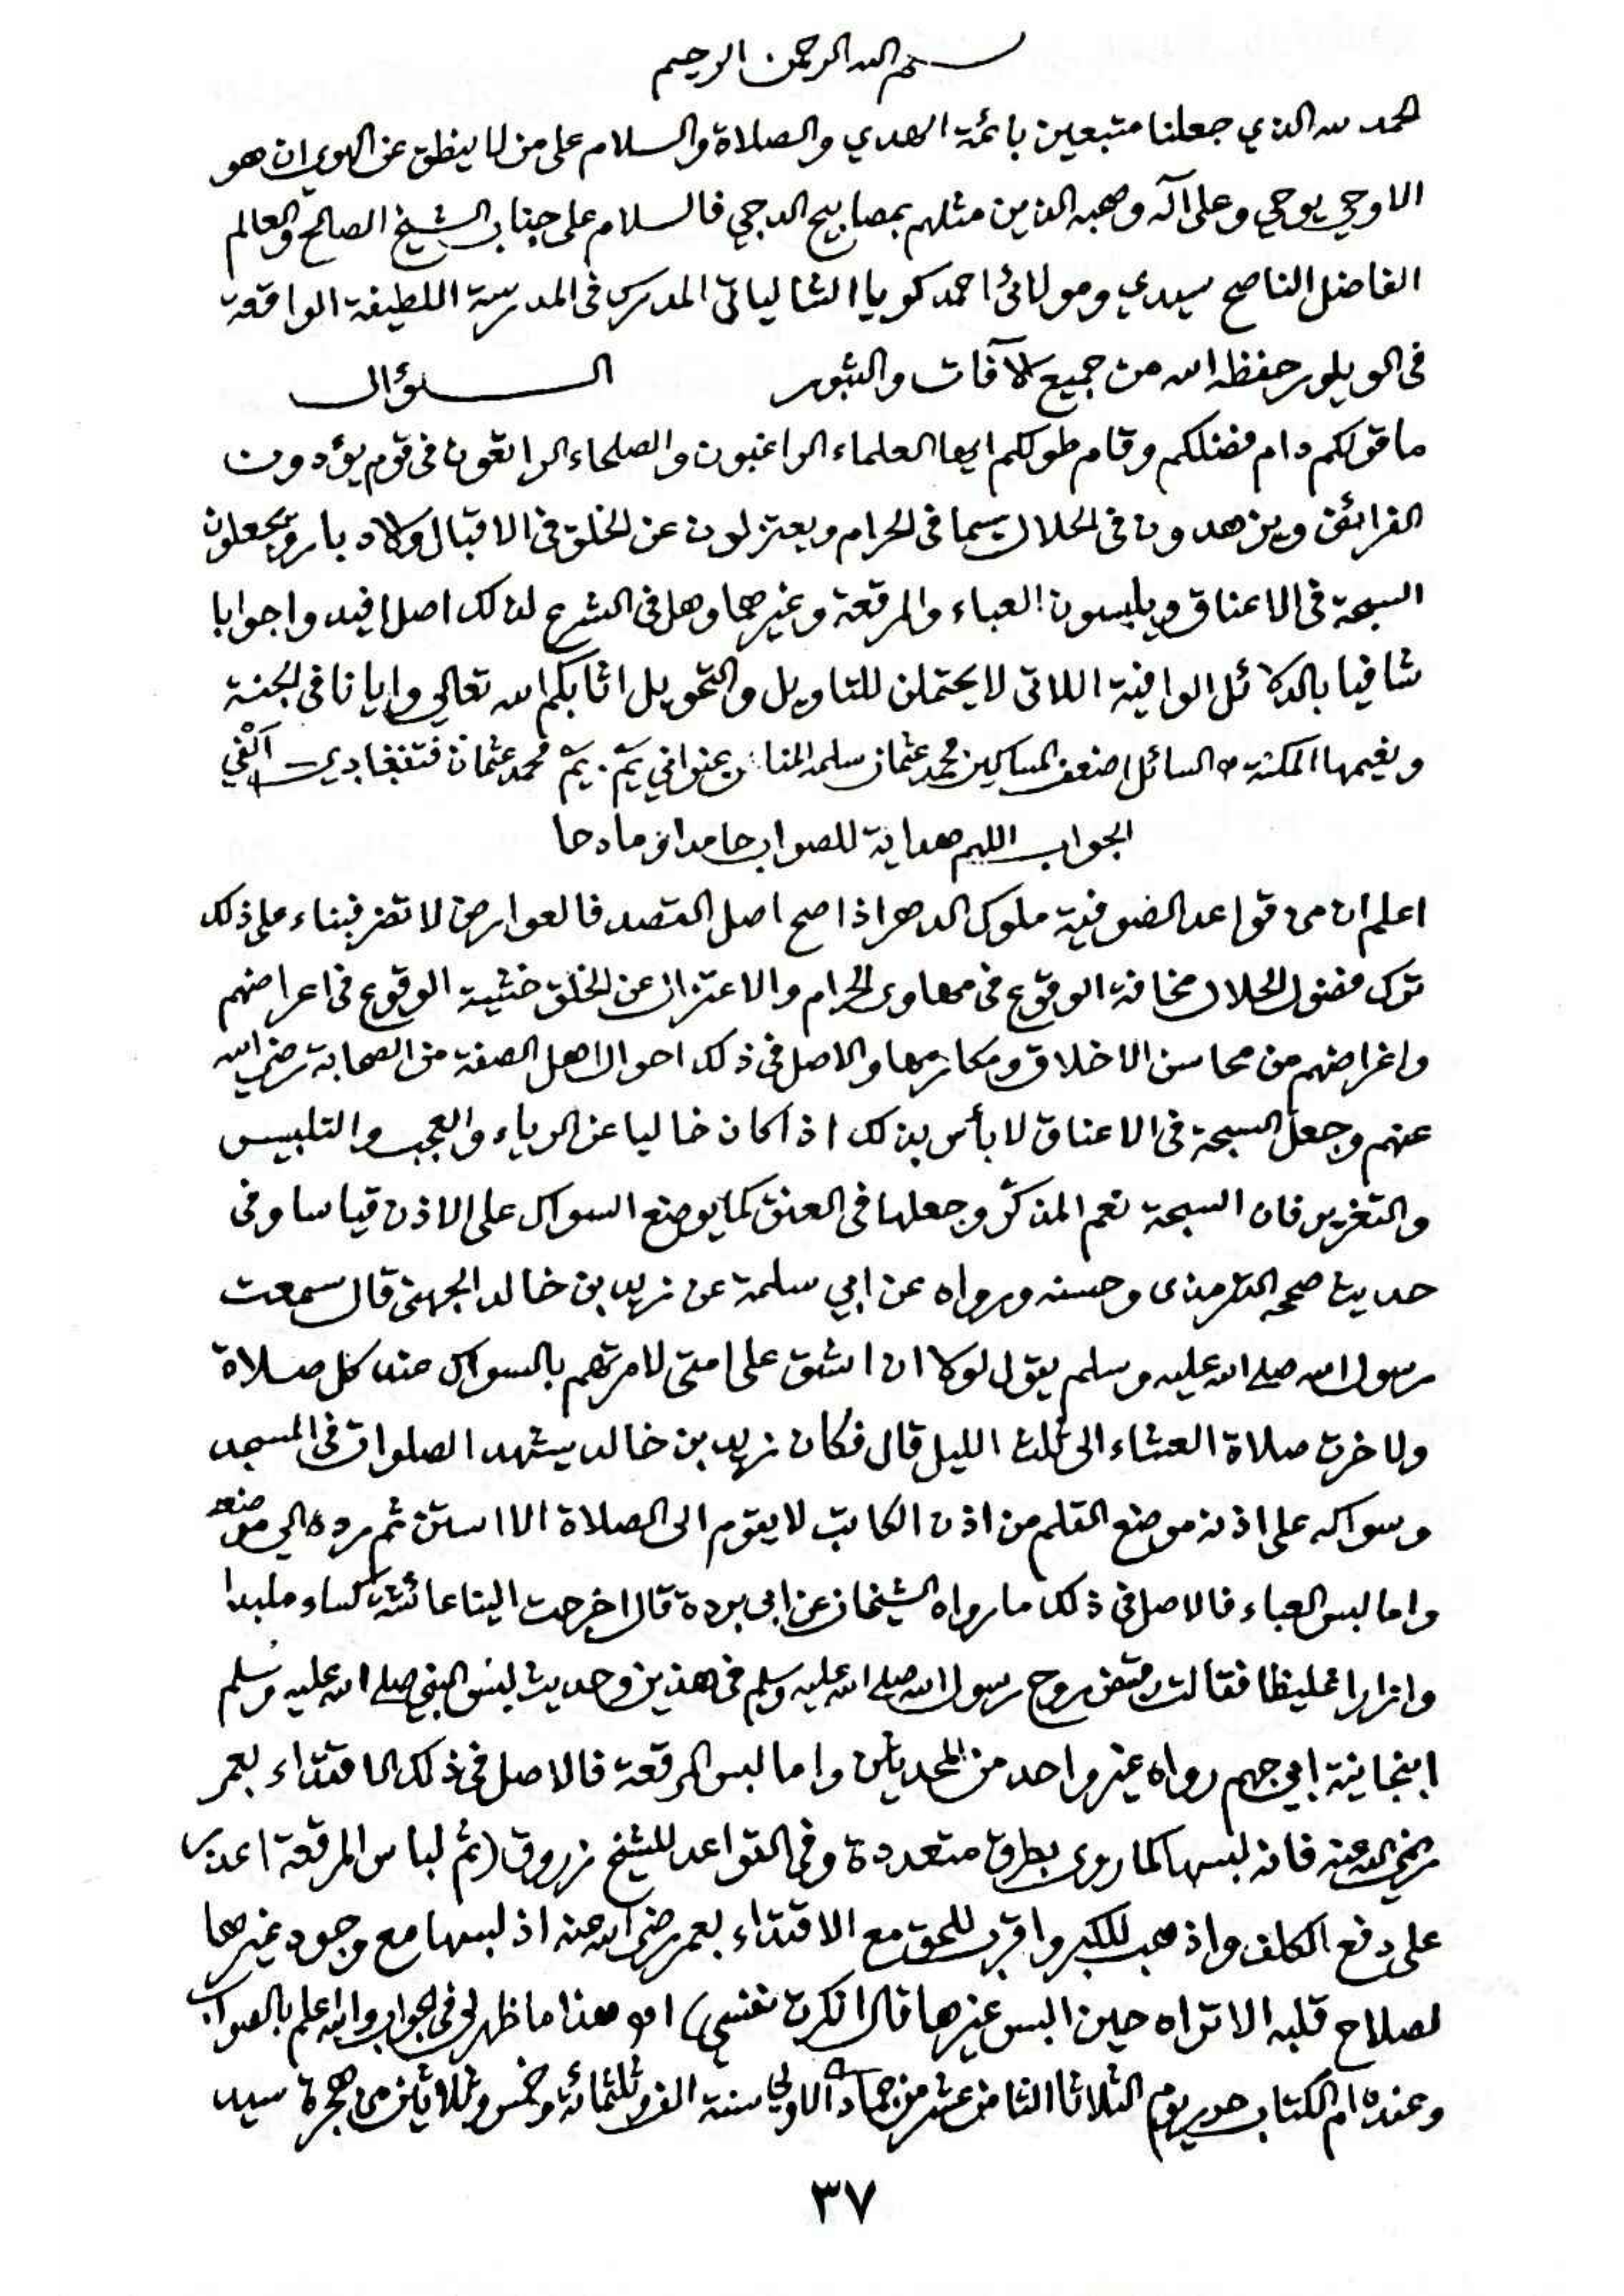 بسم الله الرحمن الرحيم
الحمد لله الذي جعلنا متبعين بائمة الهدي والصلاة والسلام على من لا ينطق عن الهوي ان هو
الا وحي يوحي وعلى آله وصحبه الذين مثلهم بمصابيح الدجي فالسلام على جناب الشيخ الصالح والعالم
الفاضل الناصح سيدي ومولائ احمد كويا الشالياتى المدرس فى المدرسة اللطيفة الواقعة
فى الويلور حفظه الله من جميع الآفات والثبور الســـؤال
ما قولكم دام فضلكم وقام طولكم ايها العلماء الراغبون والصلحاء الراتقون فى قوم يؤدون
الفرائض ويزهدون فى الحلال سيما فى الحرام ويعتزلون عن الخلق فى الاقبال والادبار ويجعلون
السبحة فى الاعناق ويلبسون العباء والمرقعة وغيرهما وهل فى الشرع لذلك اصل افيدوا جوابا
شافيا بالدلائل الوافية اللاتى لا يحتملن للتاويل والتحويل اثابكم الله تعالى وايانا فى الجنة
ونعيمها المكنة السائل اضعف المساكين محمد عثمان سلمه المنان بعنوانى يَمّ. يَمّ محمد عثمان
الجواب اللهم هداية للصواب حامدا ومادحا
اعلم ان من قواعد الصوفية ملوك الدهر اذا صح اصل القصد فالعوارض لا تضر فبناء على ذلك
ترك فضول الحلال مخافة الوقوع فى مهاوى الحرام والاعتزال عن الخلق خشية الوقوع فى اعراضهم
واغراضهم من محاسن الاخلاق ومكارمها والاصل فى ذلك احوال اهل الصفة من الصحابة رضي الله
عنهم وجعل السبحة فى الاعناق لا بأس بذلك اذا كان خاليا عن الرياء والعجب والتلبيس
والتغرير فان السبحة نعم المذكّر وجعلها فى العنق كما يوضع السواك على الاذن قياسا وفى
حديث صححه الترمذى وحسنه ورواه عن ابي سلمة عن زيد بن خالد الجهنى قال سمعت
رسول الله صلى الله عليه وسلم يقول لولا ان اشق على امتى لامرتهم بالسواك عند كل صلاة
ولاخرت صلاة العشاء الى ثلث الليل قال فكان زيد بن خالد يشهد الصلوات فى المسجد
وسواكه على اذنه موضع القلم من اذن الكاتب لا يقوم الى الصلاة الا استن ثم رده الي موضعه
واما لبس العباء فالاصل فى ذلك ما رواه الشيخان عن ابى بردة قال اخرجت الينا عائشة كساء ملبدا
وازارا غليظا فقالت قبض روح رسول الله صلى الله عليه وسلم فى هذين وحديث لبس النبي صلى الله عليه وسلم
انبجانية ابي جهم رواه غير واحد من المحدثين واما لبس المرقعة فالاصل فى ذلك الاقتداء بعمر
رضي الله عنه فانه لبسها كما روى بطرق متعددة وفى القواعد للشيخ زروق (ثم لباس المرقعة اعذر
على دفع الكلف واذهب للكبر واقرب للحق مع الاقتداء بعمر رضي الله عنه اذ لبسها مع وجود غيرها
لصلاح قلبه الا تراه حين البس غيرها قال انكرت نفسي) اه هذا ما ظهر لى فى الجواب والله اعلم بالصواب
وعنده ام الكتاب حرر يوم الثلاثا الثامن عشر من جمادى الاولي سنة الف وثلثمائة وخمس وثلاثين من هجرة سيد
٣٧